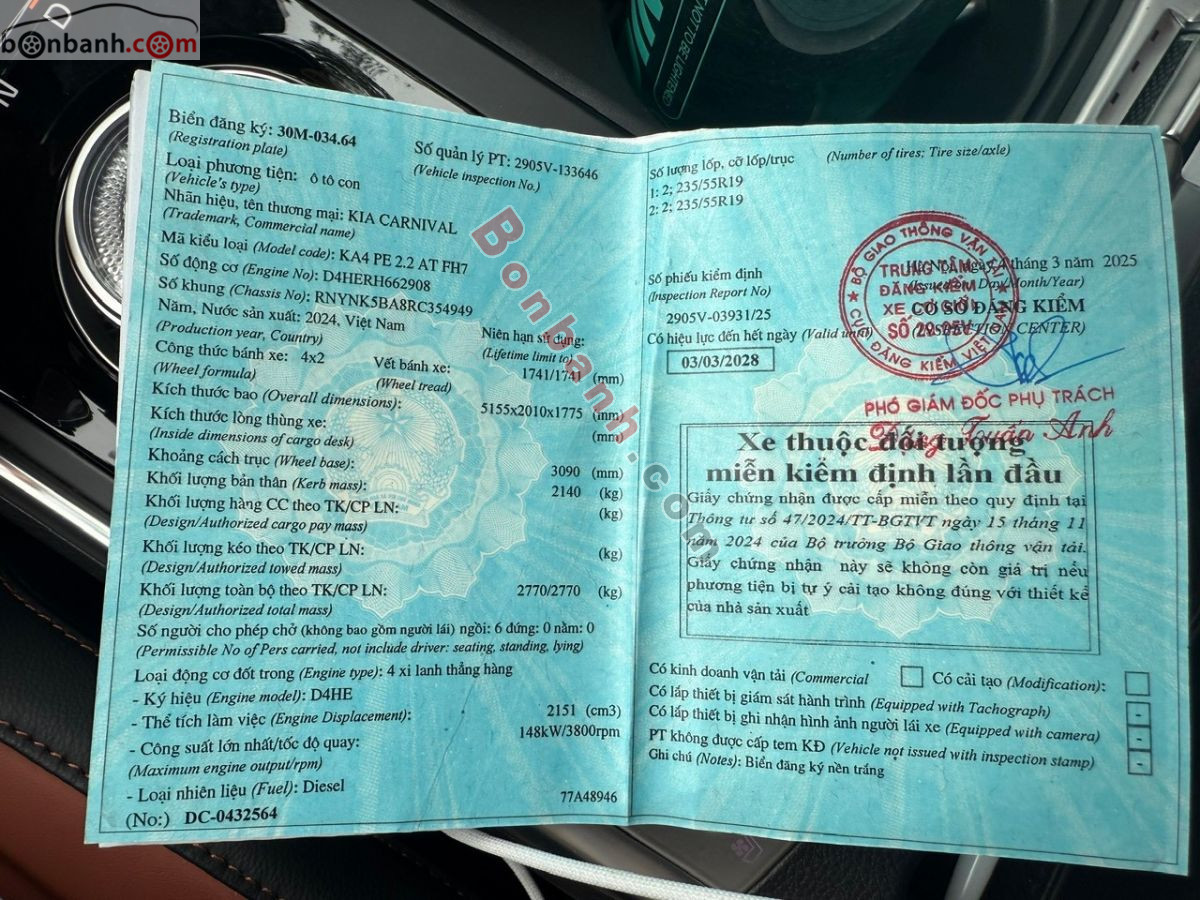 bonbanh.com
D
N
NOT TO BE LIGHTENED
Biển đăng ký: 30M-034.64
(Registration plate)
Số quản lý PT: 2905V-133646
(Vehicle inspection No.)
Loại phương tiện: ô tô con
(Vehicle's type)
Nhãn hiệu, tên thương mại: KIA CARNIVAL
(Trademark, Commercial name)
Mã kiểu loại (Model code): KA4 PE 2.2 AT FH7
Số động cơ (Engine No): D4HERH662908
Số khung (Chassis No): RNYNK5BA8RC354949
Năm, Nước sản xuất: 2024, Việt Nam
(Production year, Country)
Niên hạn sử dụng:
(Lifetime limit to)
Công thức bánh xe: 4x2
(Wheel formula)
Vết bánh xe: 1741/1741 (mm)
(Wheel tread)
Kích thước bao (Overall dimensions): 5155x2010x1775 (mm)
Kích thước lòng thùng xe: (mm)
(Inside dimensions of cargo desk)
Khoảng cách trục (Wheel base): 3090 (mm)
Khối lượng bản thân (Kerb mass): 2140 (kg)
Khối lượng hàng CC theo TK/CP LN: (kg)
(Design/Authorized cargo pay mass)
Khối lượng kéo theo TK/CP LN: (kg)
(Design/Authorized towed mass)
Khối lượng toàn bộ theo TK/CP LN: 2770/2770 (kg)
(Design/Authorized total mass)
Số người cho phép chở (không bao gồm người lái) ngồi: 6 đứng: 0 nằm: 0
(Permissible No of Pers carried, not include driver: seating, standing, lying)
Loại động cơ đốt trong (Engine type): 4 xi lanh thẳng hàng
- Ký hiệu (Engine model): D4HE
- Thể tích làm việc (Engine Displacement): 2151 (cm3)
- Công suất lớn nhất/tốc độ quay: 148kW/3800rpm
(Maximum engine output/rpm)
- Loại nhiên liệu (Fuel): Diesel
77A48946
(No:) DC-0432564
Số lượng lốp, cỡ lốp/trục (Number of tires; Tire size/axle)
1: 2; 235/55R19
2: 2; 235/55R19
Số phiếu kiểm định
(Inspection Report No)
2905V-03931/25
Có hiệu lực đến hết ngày (Valid until)
03/03/2028
ngày 4 tháng 3 năm 2025
(Issued on Day/Month/Year)
CƠ SỞ ĐĂNG KIỂM
(INSPECTION CENTER)
BỘ GIAO THÔNG VẬN TẢI
CỤC ĐĂNG KIỂM VIỆT NAM
TRUNG TÂM
ĐĂNG KIỂM
XE CƠ GIỚI
SỐ 29-05V
PHÓ GIÁM ĐỐC PHỤ TRÁCH
Tuấn Anh
Xe thuộc đối tượng
miễn kiểm định lần đầu
Giấy chứng nhận được cấp miễn theo quy định tại
Thông tư số 47/2024/TT-BGTVT ngày 15 tháng 11
năm 2024 của Bộ trưởng Bộ Giao thông vận tải.
Giấy chứng nhận này sẽ không còn giá trị nếu
phương tiện bị tự ý cải tạo không đúng với thiết kế
của nhà sản xuất
Có kinh doanh vận tải (Commercial
Có cải tạo (Modification):
Có lắp thiết bị giám sát hành trình (Equipped with Tachograph) -
Có lắp thiết bị ghi nhận hình ảnh người lái xe (Equipped with camera) -
PT không được cấp tem KĐ (Vehicle not issued with inspection stamp) -
Ghi chú (Notes): Biển đăng ký nền trắng
Bonbanh.com